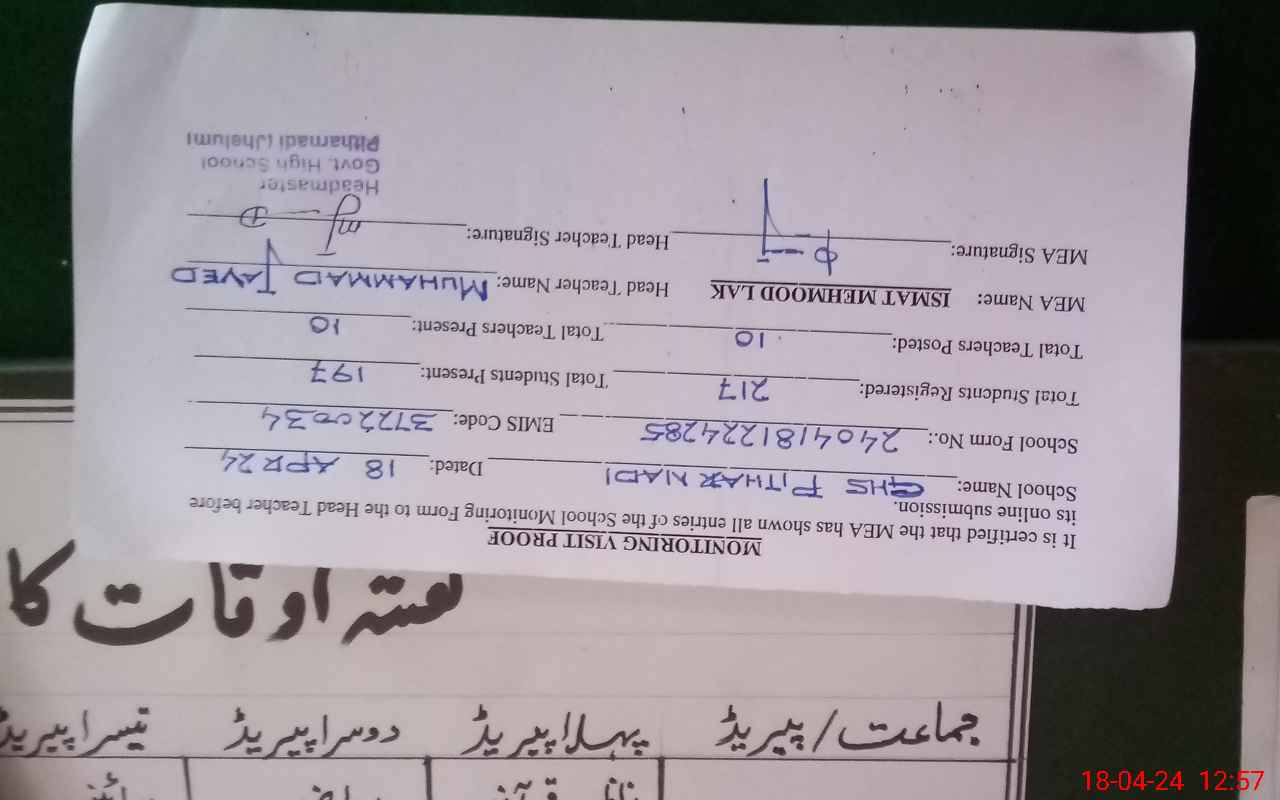 MONITORING VISIT PROOF
It is certified that the MEA has shown all entries of the School Monitoring Form to the Head Teacher before
its online submission.
School Name: GHS PITHAR NADI Dated: 18 APR 24
School Form No.: 2404181224285 EMIS Code: 37220034
Total Students Registered: 217 Total Students Present: 197
Total Teachers Posted: 10 Total Teachers Present: 10
MEA Name: ISMAT MEHMOOD LAK Head Teacher Name: MUHAMMAD JAVED
MEA Signature: Head Teacher Signature:
Headmaster
Govt. High School
Pitharnadi (Jhelum)
اوقات کا
جماعت/پیریڈ پہلا پیریڈ دوسرا پیریڈ تیسرا پیریڈ
18-04-24 12:57